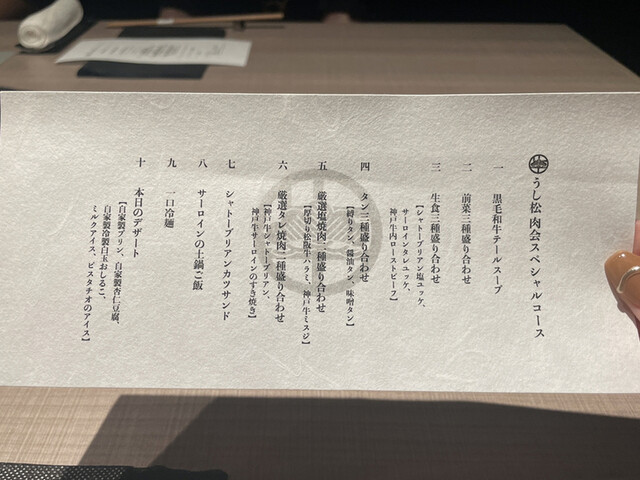 うし松 肉会スペシャルコース
一 黒毛和牛テールスープ
二 前菜三種盛り合わせ
三 生食三種盛り合わせ
【シャトーブリアン塩ユッケ、
サーロインタレユッケ、
神戸牛内ローストビーフ】
四 タン三種盛り合わせ
【縛りタン、醤油タン、味噌タン】
五 厳選塩焼肉二種盛り合わせ
【厚切り松阪牛ハラミ、神戸牛ミスジ】
六 厳選タレ焼肉二種盛り合わせ
【神戸牛シャトーブリアン、
神戸牛サーロインのすき焼き】
七 シャトーブリアンカツサンド
八 サーロインの土鍋ご飯
九 一口冷麺
十 本日のデザート
【自家製プリン、自家製杏仁豆腐、
自家製冷製白玉おしるこ、
ミルクアイス、ピスタチオのアイス】